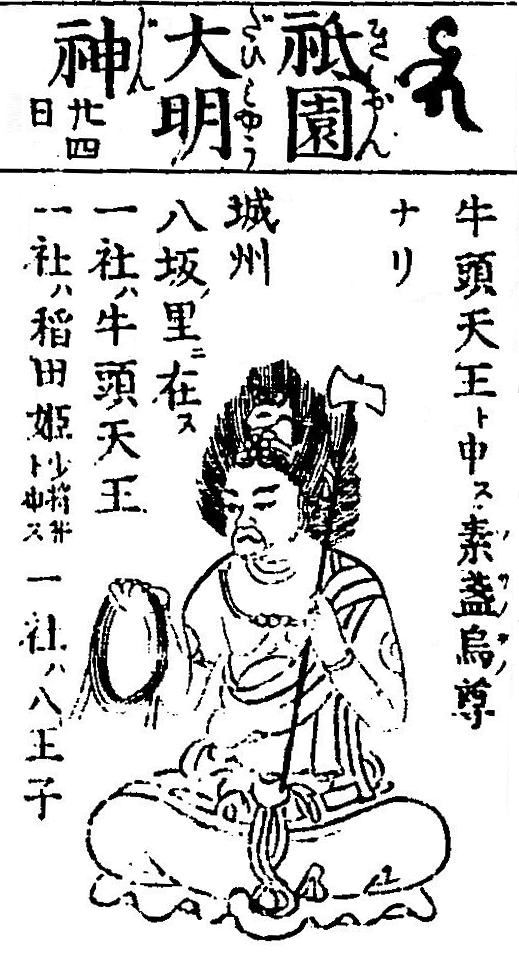 祇園
大明
神
廿四
日
牛頭天王ト申ス素盞烏尊
ナリ
城州
八坂ノ里ニ在ス
一社ハ牛頭天王
一社ハ稲田姫少将井ト申ス一社ハ八王子